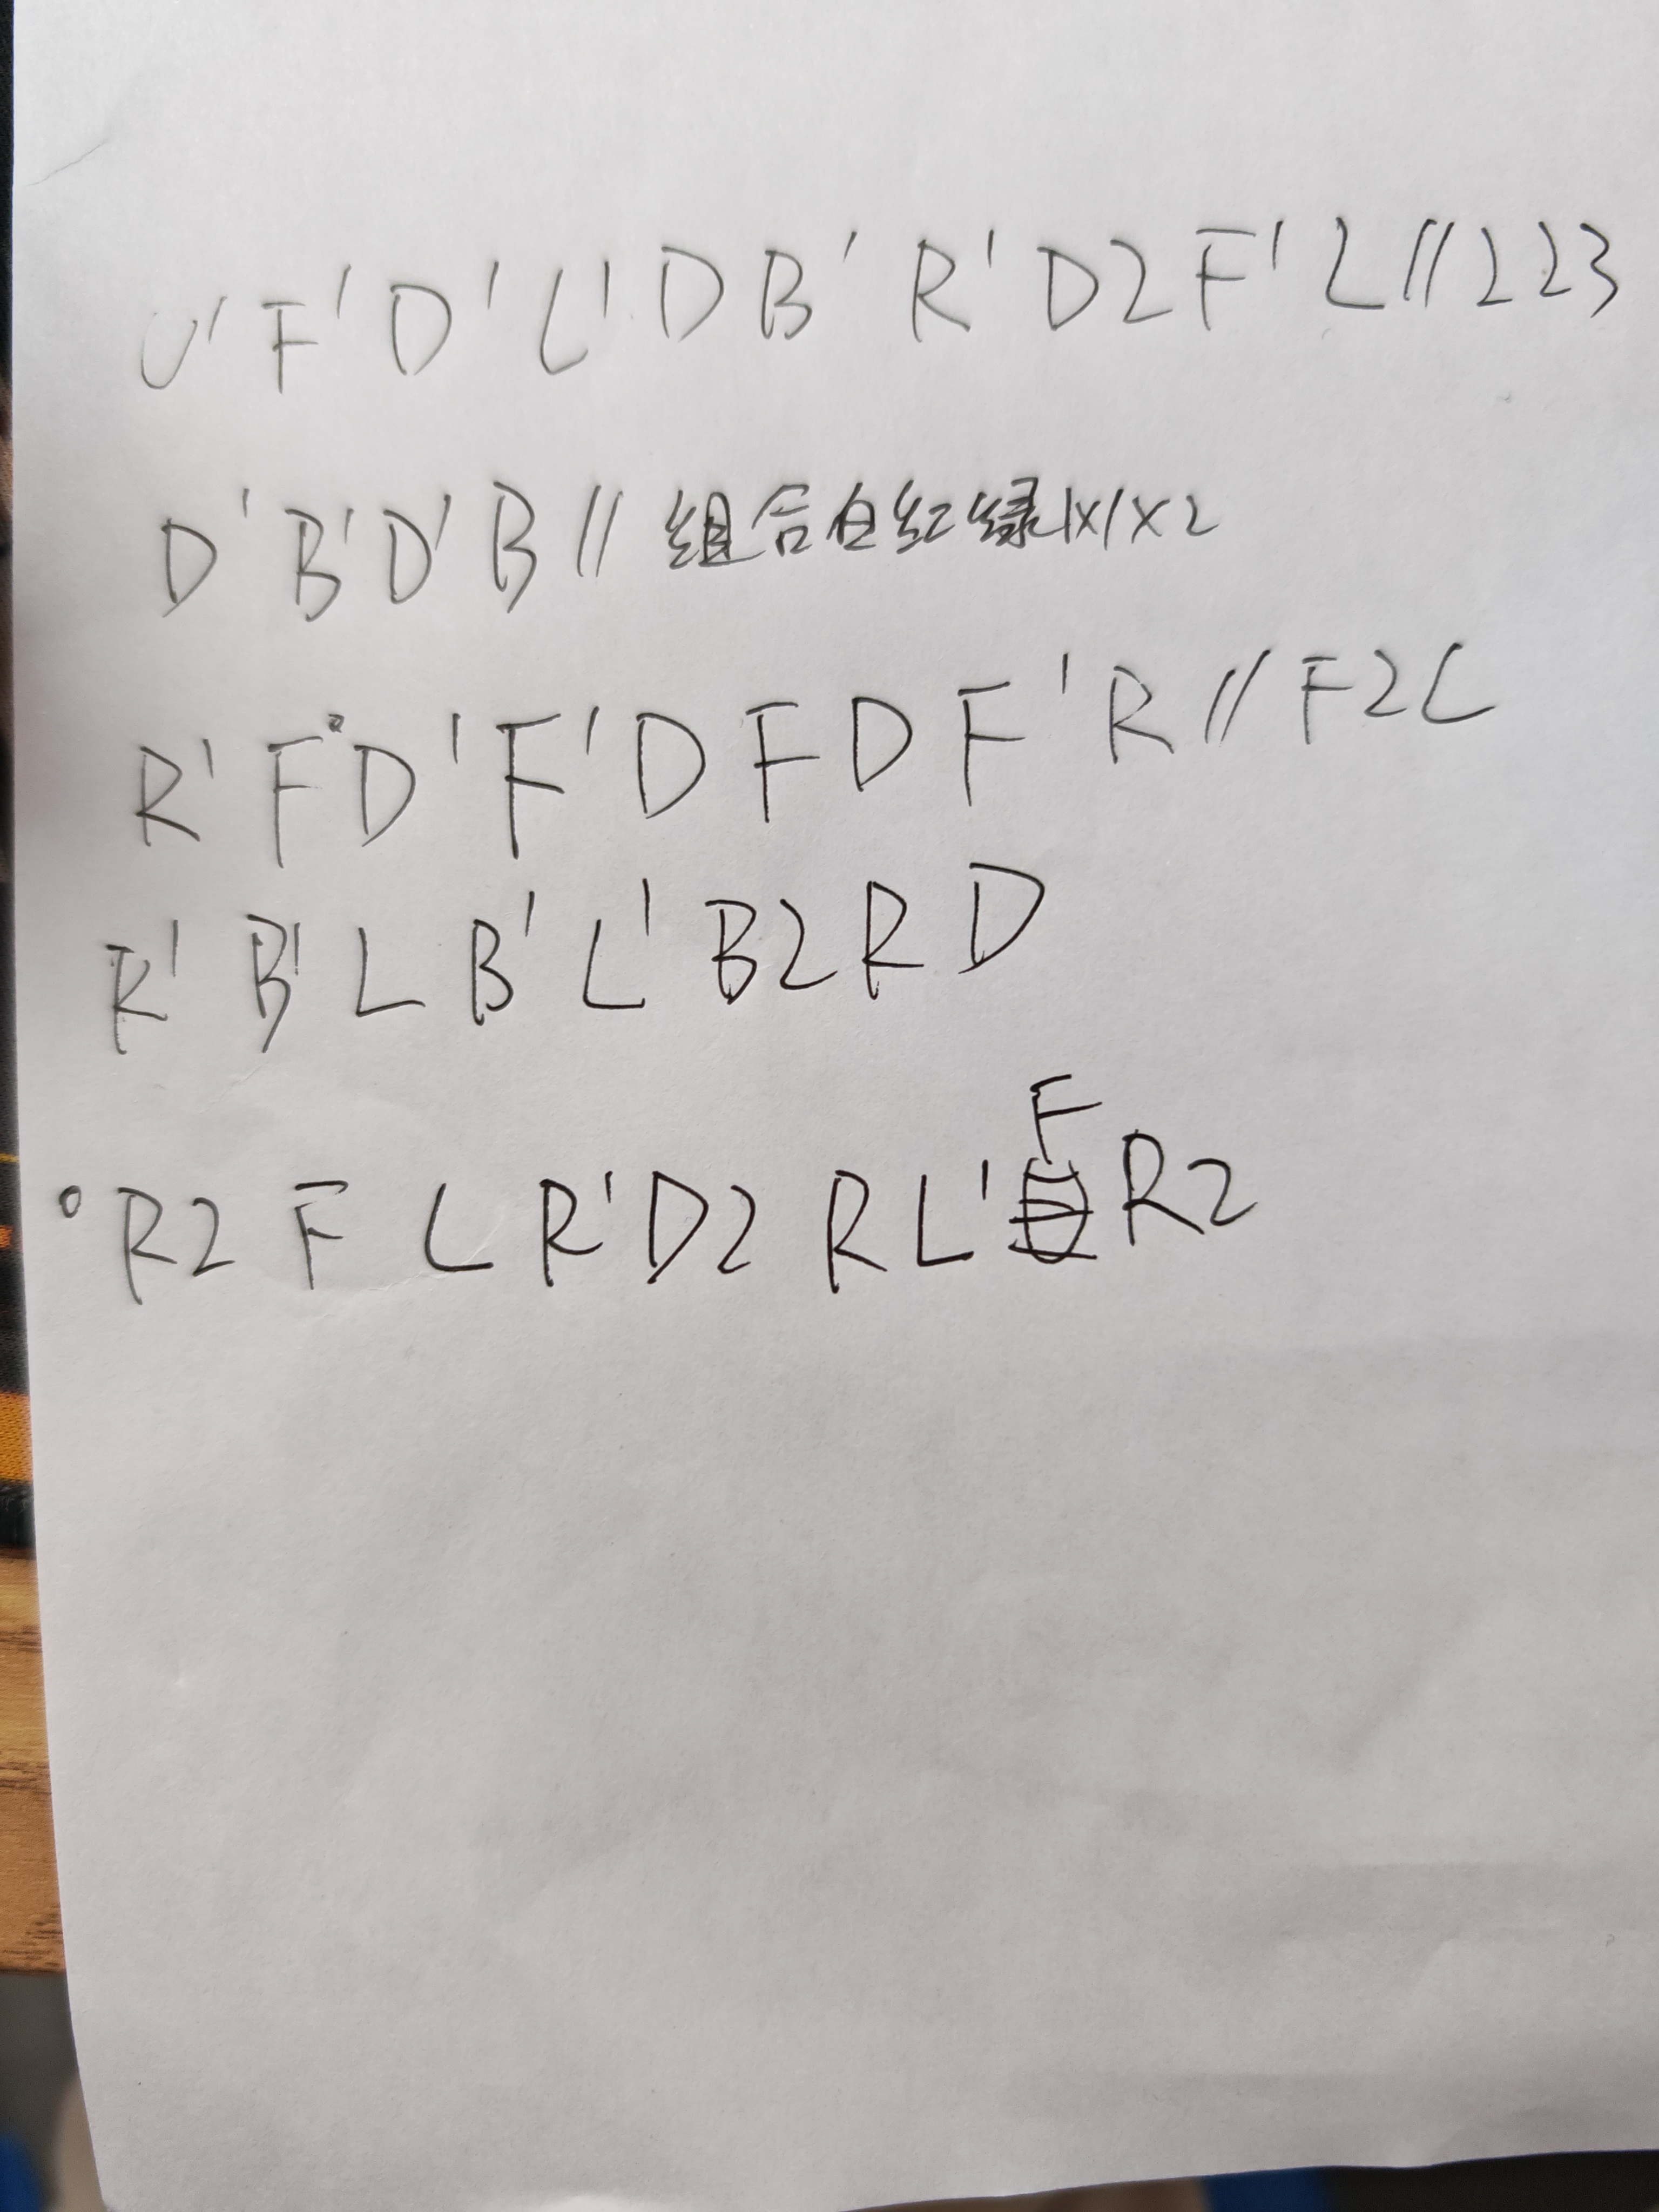 U' F' D' L' D B' R' D2 F' L // 223
D' B' D' B // 组合白红绿1x1x2
R' F°D' F' D F D F' R // F2L
R' B' L B' L' B2 R D
°R2 F L R' D2 R L' F R2